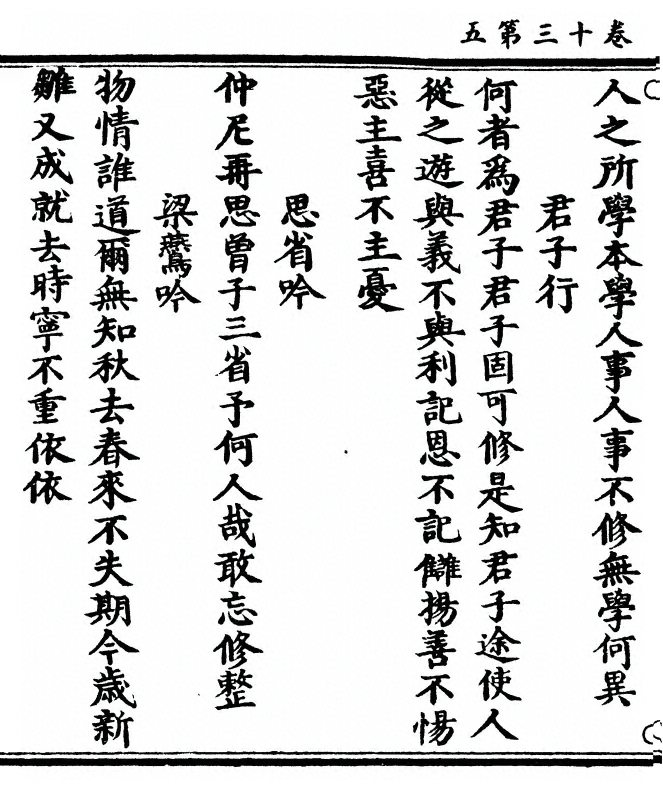 五第三十卷
人之所學本學人事人事不修無學何異
君子行
何者爲君子君子固可修是知君子途使人
從之遊與義不與利記恩不記讎揚善不惕
惡主喜不主憂
思省吟
仲尼再思曾子三省予何人哉敢忘修整
梁鷰吟
物情誰道爾無知秋去春來不失期今歲新
雛又成就去時寧不重依依